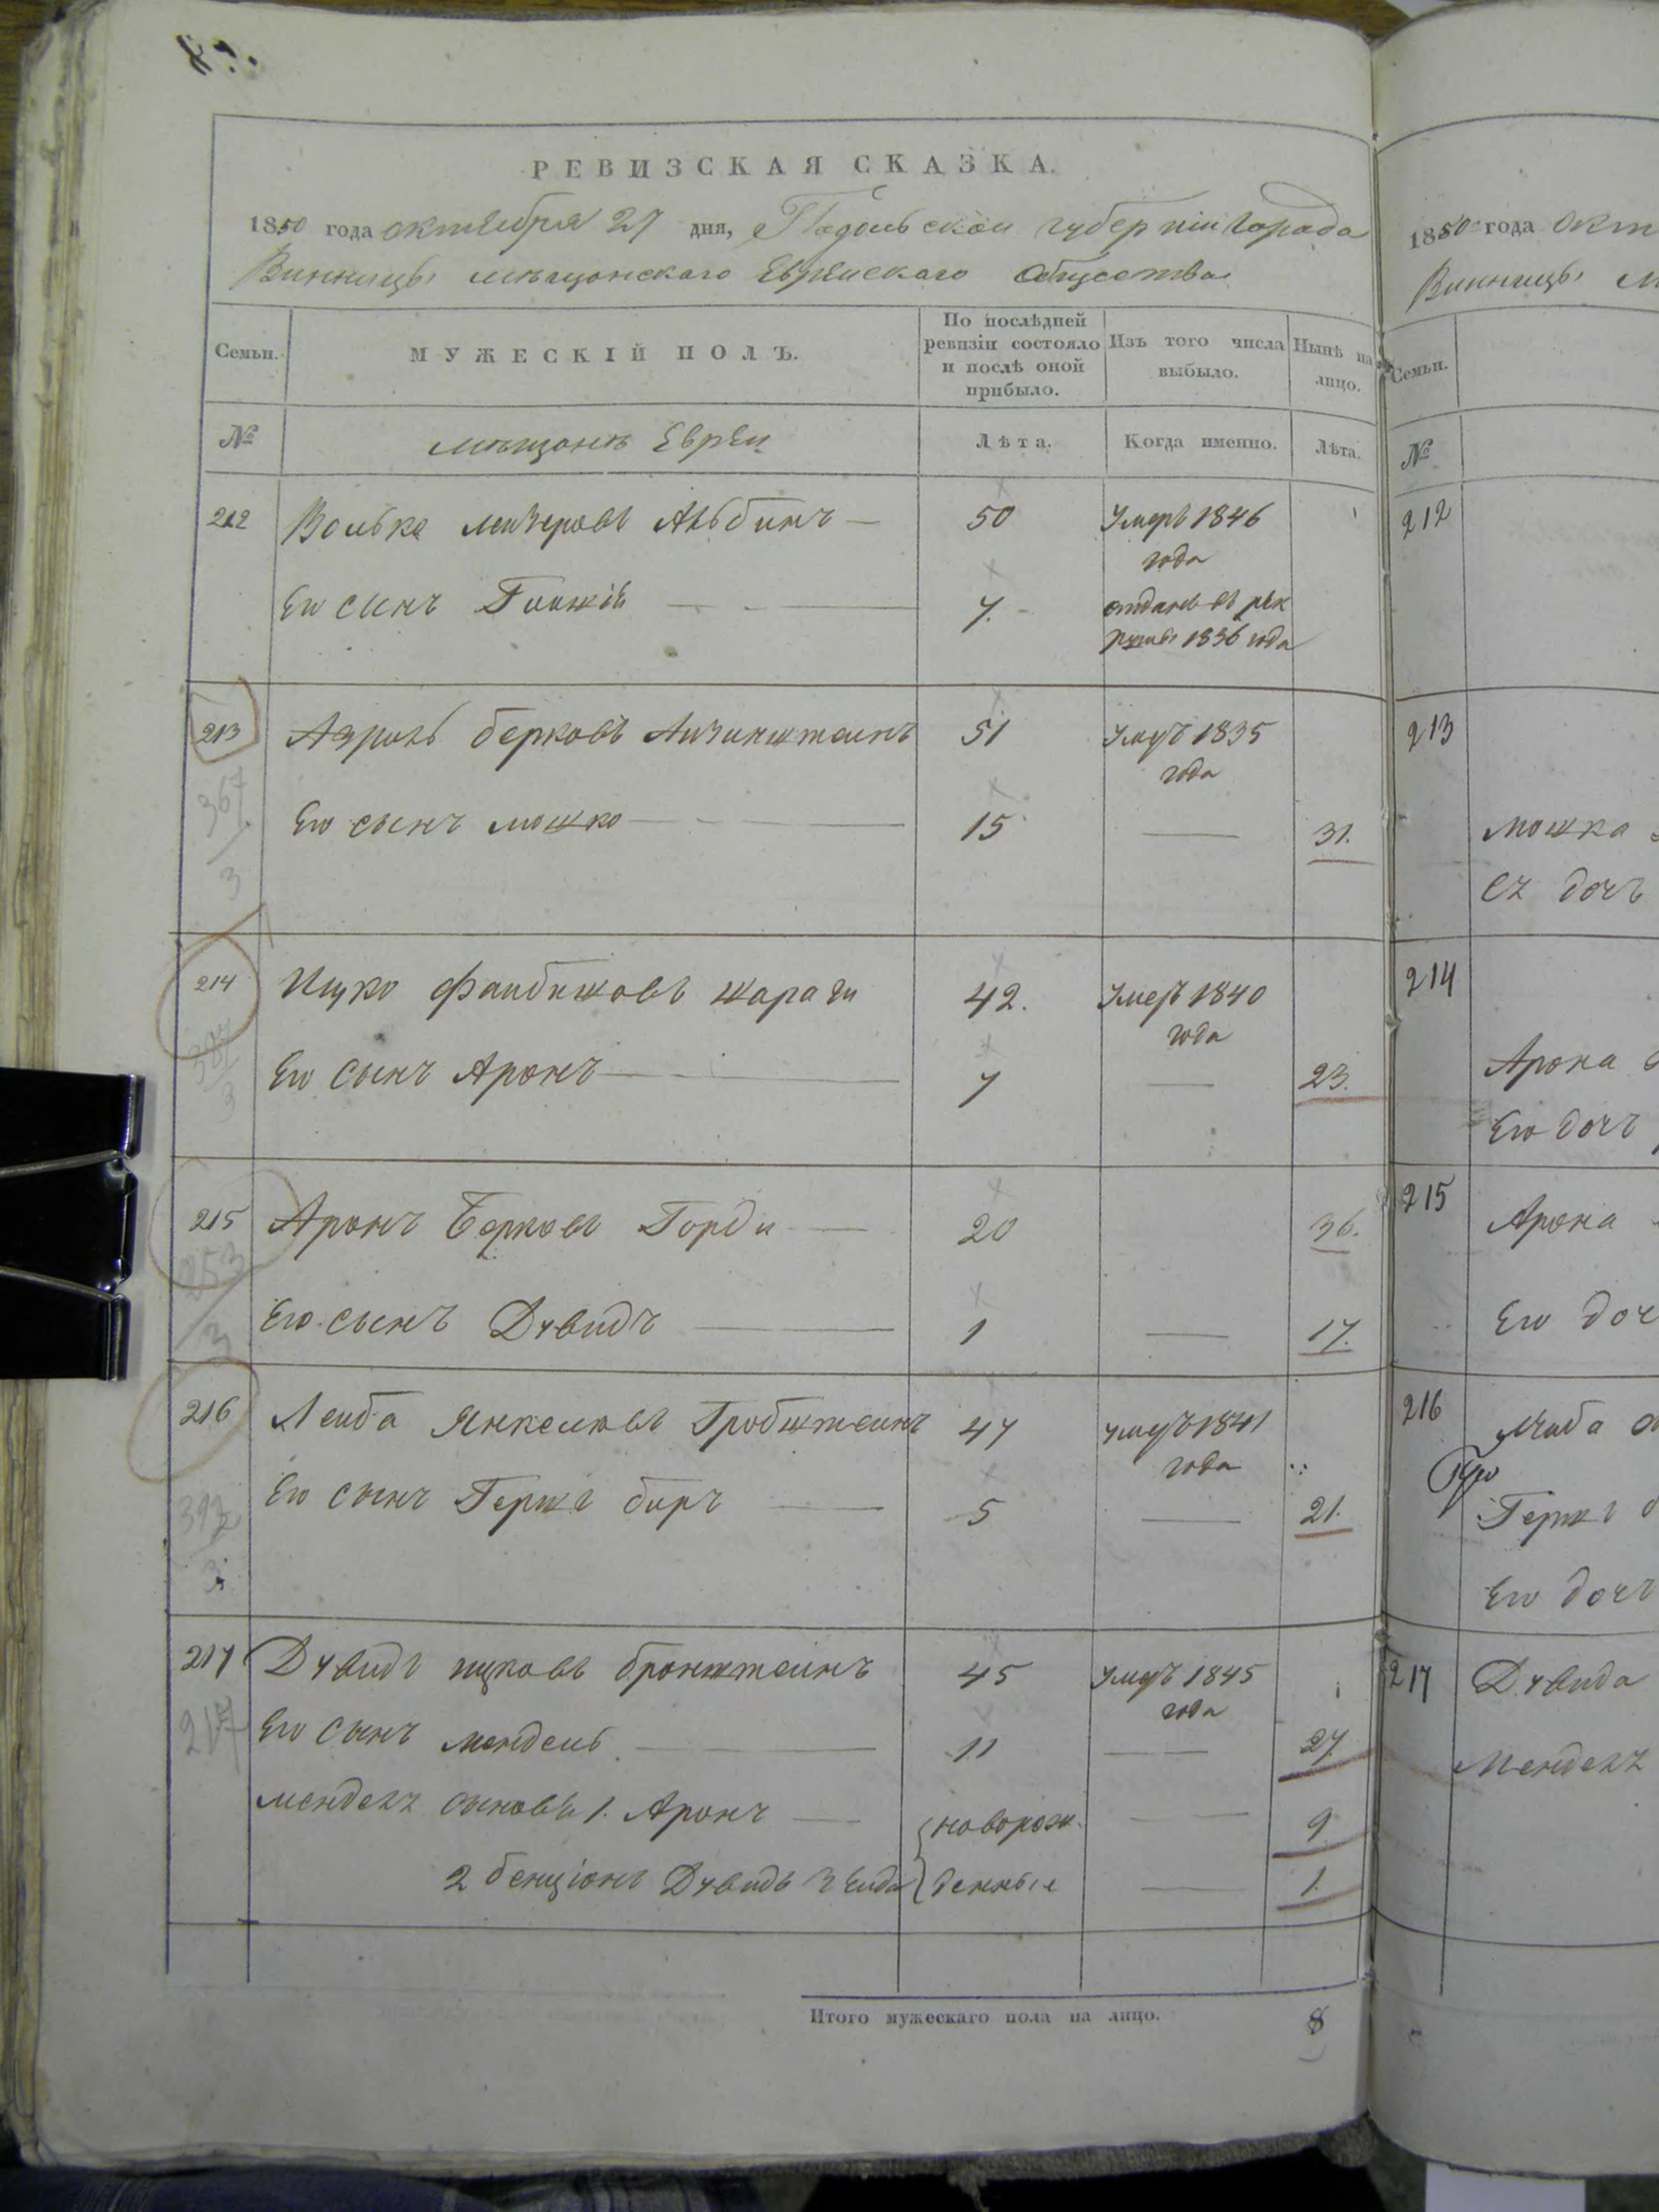 РЕВИЗСКАЯ СКАЗКА.
1850 года октября 27 дня, Подольской губернии города
Винницы мѣщанскаго Еврейскаго общества
Семьи.
МУЖЕСКІЙ ПОЛЪ.
По послѣдней ревизіи состояло и послѣ оной прибыло.
Изъ того числа выбыло.
Нынѣ на лицо.
№
мѣщане Евреи
Лѣта.
Когда именно.
Лѣта.
212 Волько Лейзеровъ 50 Умеръ 1846
года
Его сынъ 7. отданъ въ рек
руты 1836 года
213 Берковъ Айзинштейнъ 51 умеръ 1835
года
367
3
Его сынъ мошко 15 31.
214 Ицко Файбишовъ 42. Умеръ 1840
года
387
3
Его сынъ Аронъ 7 23.
215 Аронъ Берковъ 20 36.
253
3
Его сынъ Дувидъ 1 17.
216 Лейба Янкелевъ Гробштейнъ 47 умеръ 1841
года
392
3
Его сынъ Герш беръ 5 21.
217 Дувидъ ицковъ бронштейнъ 45 умеръ 1845
года
217
Его сынъ мендель 11 27.
менделя сыновья 1. Аронъ новорож- 9
2 бенціонъ Дувидъ Зейда денные 1.
Итого мужескаго пола на лицо. 8
1850 года Окт
Винницы м
Семьи.
№
212
213
мошка
Ея дочь
214
Арона
Его дочь
215
Арона
Его доч
216
Герш
Его дочь
217 Дувида
Менделя